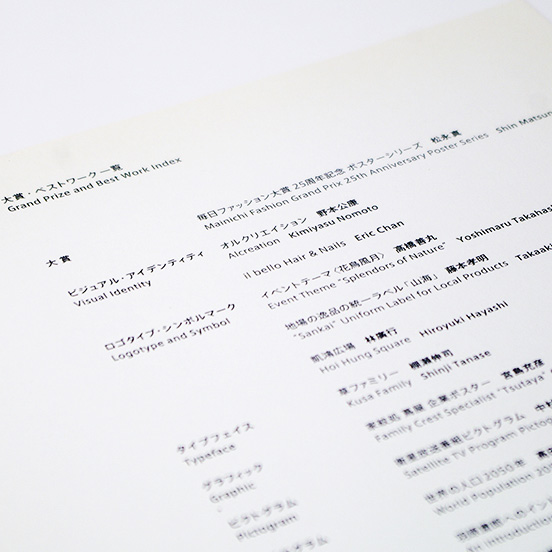 大賞・ベストワーク一覧
Grand Prize and Best Work Index
大賞
毎日ファッション大賞 25周年記念 ポスターシリーズ 松永真
Mainichi Fashion Grand Prix 25th Anniversary Poster Series Shin Matsun
ビジュアル・アイデンティティ
Visual Identity
オルクリエイション 野本公康
Alcreation Kimiyasu Nomoto
il bello Hair & Nails Eric Chan
イベントテーマ〈花鳥風月〉 高橋善丸
Event Theme "Splendors of Nature" Yoshimaru Takahas
ロゴタイプ・シンボルマーク
Logotype and Symbol
地場の逸品の統一ラベル「山海」 藤本孝明
"Sankai" Uniform Label for Local Products Takaak
凱鴻広場 林廣行
Hoi Hung Square Hiroyuki Hayashi
草ファミリー 棚瀬伸司
Kusa Family Shinji Tanase
タイプフェイス
Typeface
家紋処 蔦屋 企業ポスター
Family Crest Specialist "Tsutaya"
グラフィック
Graphic
衛星放送番組ピクトグラム
Satellite TV Program Pictog
ピクトグラム
Pictogram
世界の人口 2050年
World Population 20